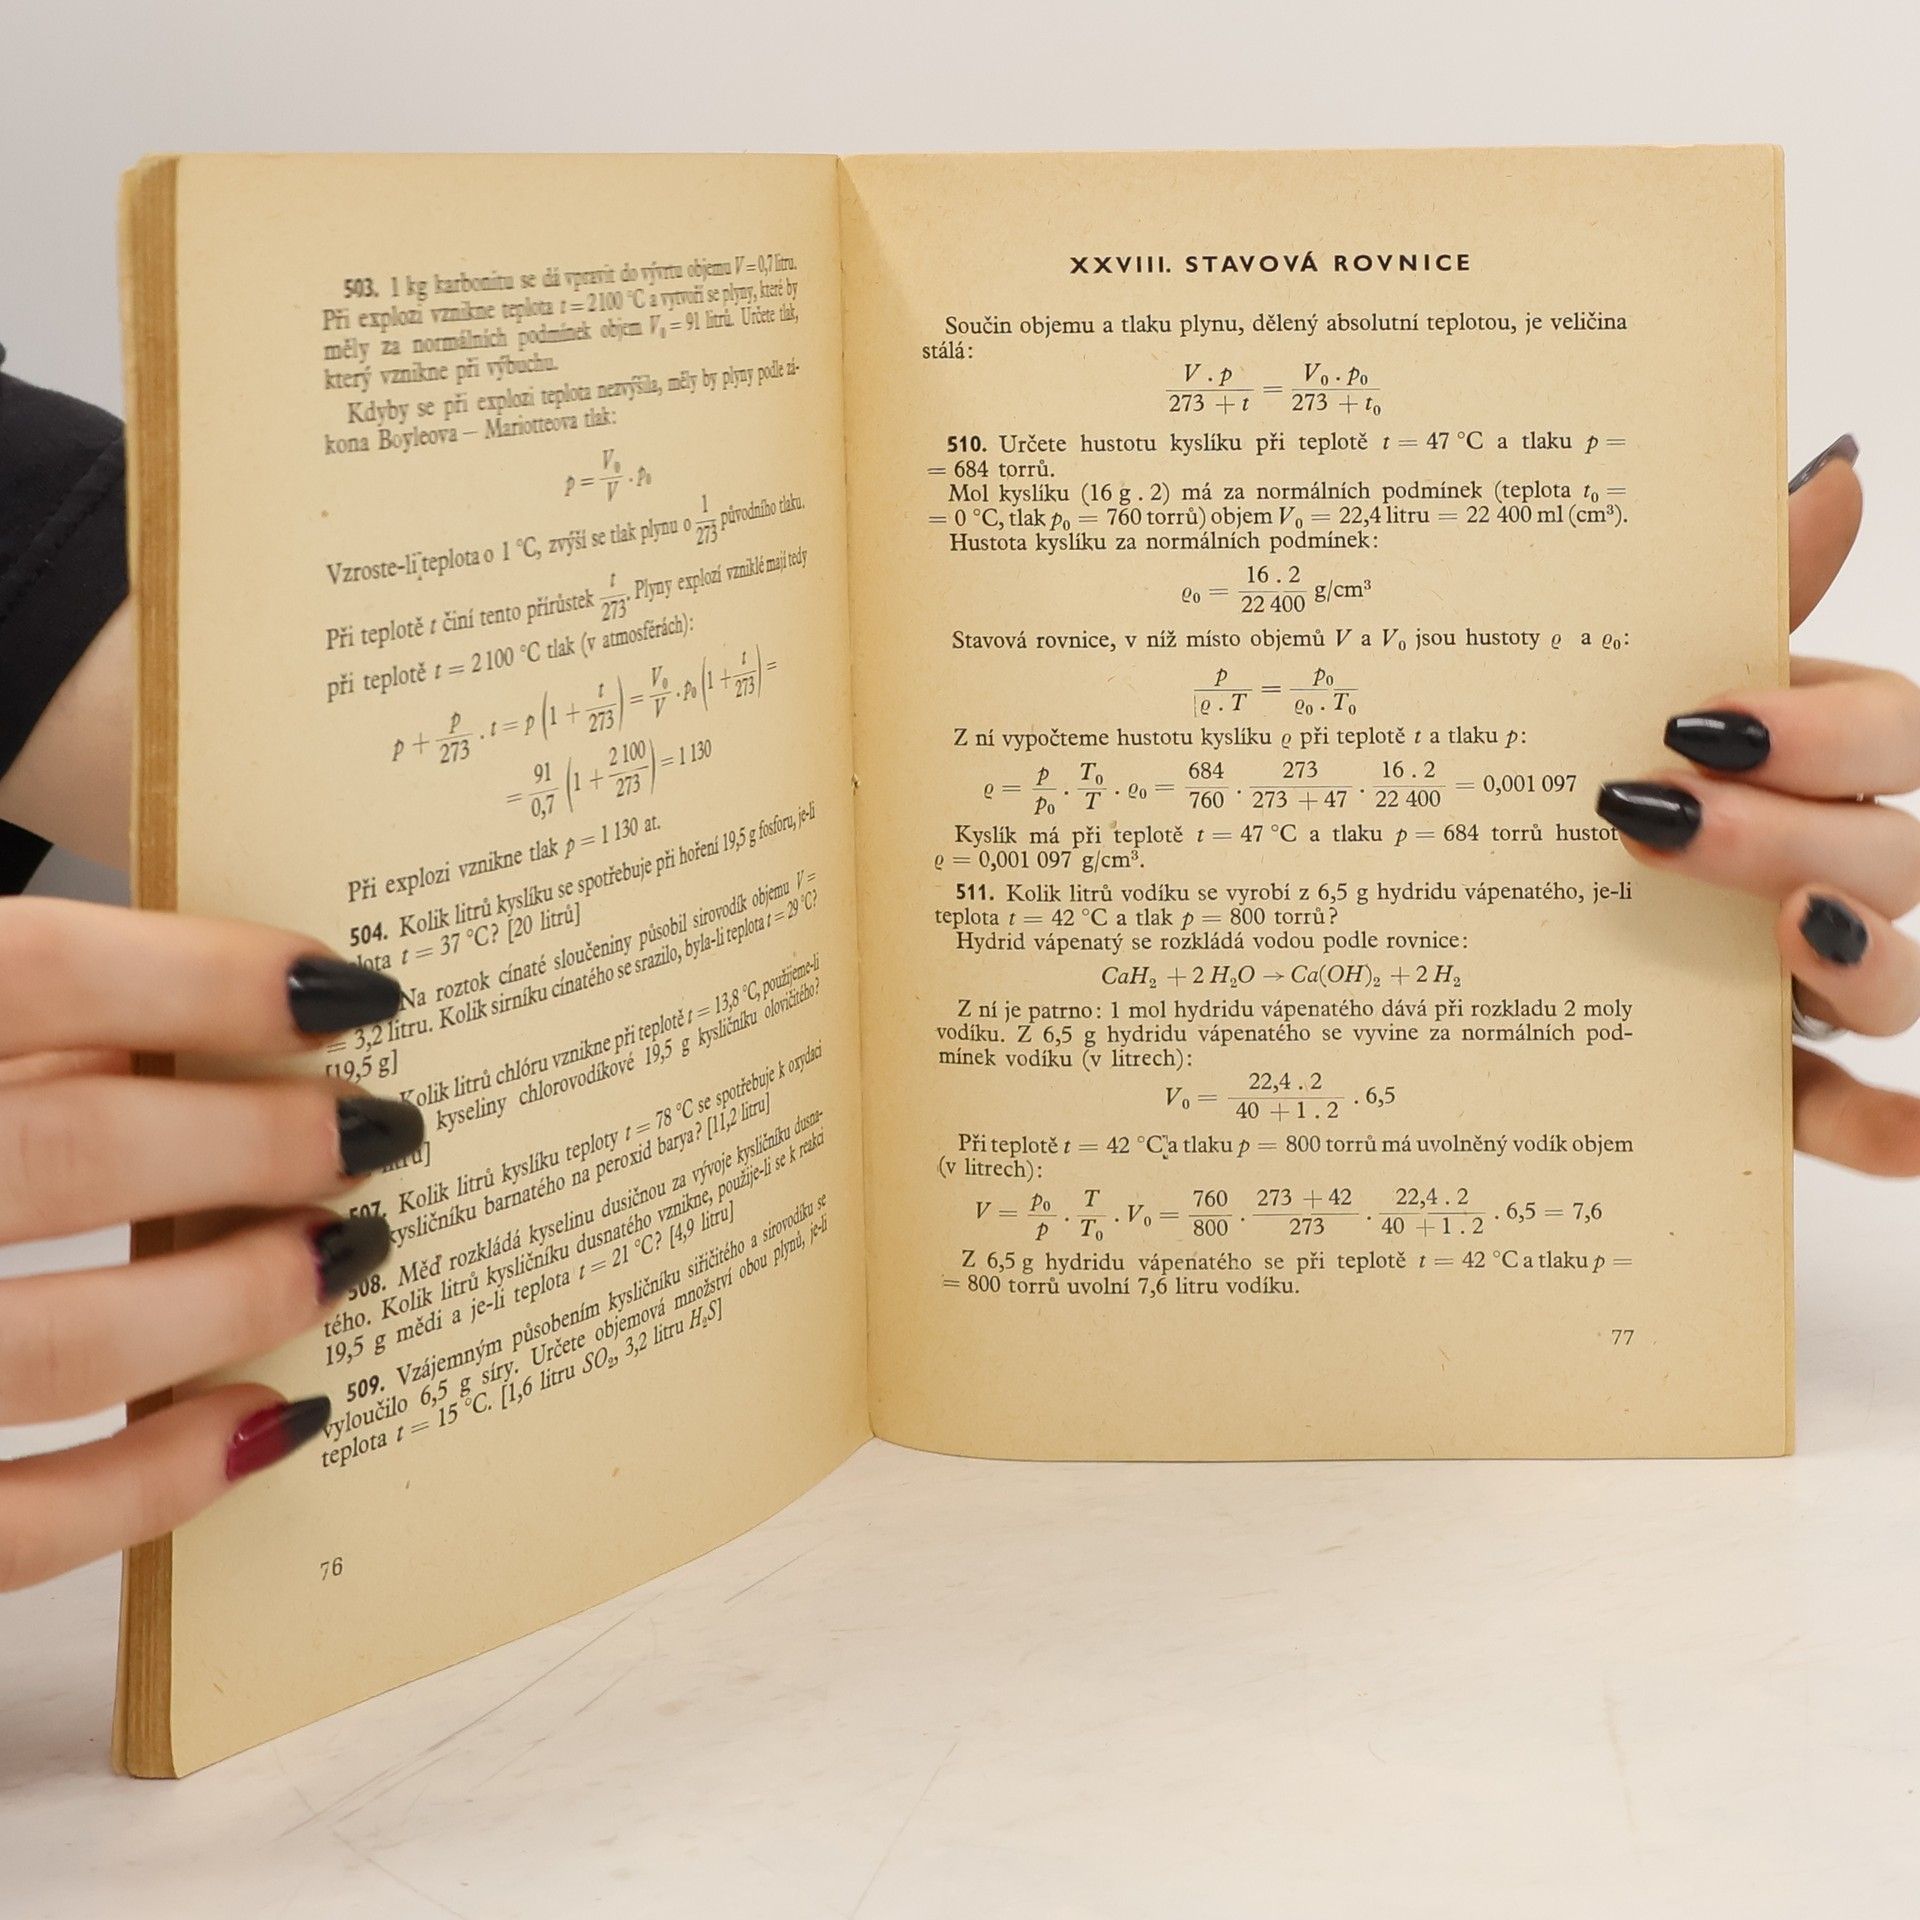 503. 1 kg karbonitu se dá vpravit do vývrtu objemu V = 0,7 litru.
Při explozi vznikne teplota t = 2100 °C a vytvoří se plyny, které by
měly za normálních podmínek objem V₀ = 91 litrů. Určete tlak,
který vznikne při výbuchu.
Kdyby se při explozi teplota nezvýšila, měly by plyny podle zá-
kona Boyleova — Mariotteova tlak:
p = V₀/V . p₀
Vzroste-li teplota o 1 °C, zvýší se tlak plynu o 1/273 původního tlaku.
Při teplotě t činí tento přírůstek t/273. Plyny explozí vzniklé mají tedy
při teplotě t = 2 100 °C tlak (v atmosférách):
p + p/273 . t = p (1 + t/273) = V₀/V . p₀ (1 + t/273) =
= 91/0,7 (1 + 2 100/273) = 1 130
Při explozi vznikne tlak p = 1 130 at.
504. Kolik litrů kyslíku se spotřebuje při hoření 19,5 g fosforu, je-li
t = 37 °C? [20 litrů]
Na roztok cínaté sloučeniny působil sirovodík objemu V =
= 3,2 litru. Kolik sirníku cínatého se srazilo, byla-li teplota t = 29 °C?
[19,5 g]
Kolik litrů chlóru vznikne při teplotě t = 13,8 °C, použijeme-li
kyseliny chlorovodíkové 19,5 g kysličníku olovičitého?
507. Kolik litrů kyslíku teploty t = 78 °C se spotřebuje k oxydaci
kysličníku barnatého na peroxid barya? [11,2 litru]
508. Měď rozkládá kyselinu dusičnou za vývoje kysličníku dusna-
tého. Kolik litrů kysličníku dusnatého vznikne, použije-li se k reakci
19,5 g mědi a je-li teplota t = 21 °C? [4,9 litru]
509. Vzájemným působením kysličníku siřičitého a sirovodíku se
vyloučilo 6,5 g síry. Určete objemová množství obou plynů, je-li
teplota t = 15 °C. [1,6 litru SO₂, 3,2 litru H₂S]
76
XXVIII. STAVOVÁ ROVNICE
Součin objemu a tlaku plynu, dělený absolutní teplotou, je veličina
stálá:
V . p / 273 + t = V₀ . p₀ / 273 + t₀
510. Určete hustotu kyslíku při teplotě t = 47 °C a tlaku p =
= 684 torrů.
Mol kyslíku (16 g . 2) má za normálních podmínek (teplota t₀ =
= 0 °C, tlak p₀ = 760 torrů) objem V₀ = 22,4 litru = 22 400 ml (cm³).
Hustota kyslíku za normálních podmínek:
ϱ₀ = 16 . 2 / 22 400 g/cm³
Stavová rovnice, v níž místo objemů V a V₀ jsou hustoty ϱ a ϱ₀:
p / ϱ . T = p₀ / ϱ₀ . T₀
Z ní vypočteme hustotu kyslíku ϱ při teplotě t a tlaku p:
ϱ = p/p₀ . T₀/T . ϱ₀ = 684/760 . 273/273 + 47 . 16 . 2/22 400 = 0,001 097
Kyslík má při teplotě t = 47 °C a tlaku p = 684 torrů hustot
ϱ = 0,001 097 g/cm³.
511. Kolik litrů vodíku se vyrobí z 6,5 g hydridu vápenatého, je-li
teplota t = 42 °C a tlak p = 800 torrů?
Hydrid vápenatý se rozkládá vodou podle rovnice:
CaH₂ + 2 H₂O → Ca(OH)₂ + 2 H₂
Z ní je patrno: 1 mol hydridu vápenatého dává při rozkladu 2 moly
vodíku. Z 6,5 g hydridu vápenatého se vyvine za normálních pod-
mínek vodíku (v litrech):
V₀ = 22,4 . 2 / 40 + 1 . 2 . 6,5
Při teplotě t = 42 °C a tlaku p = 800 torrů má uvolněný vodík objem
(v litrech):
V = p₀/p . T/T₀ . V₀ = 760/800 . 273 + 42/273 . 22,4 . 2/40 + 1 . 2 . 6,5 = 7,6
Z 6,5 g hydridu vápenatého se při teplotě t = 42 °C a tlaku p =
= 800 torrů uvolní 7,6 litru vodíku.
77